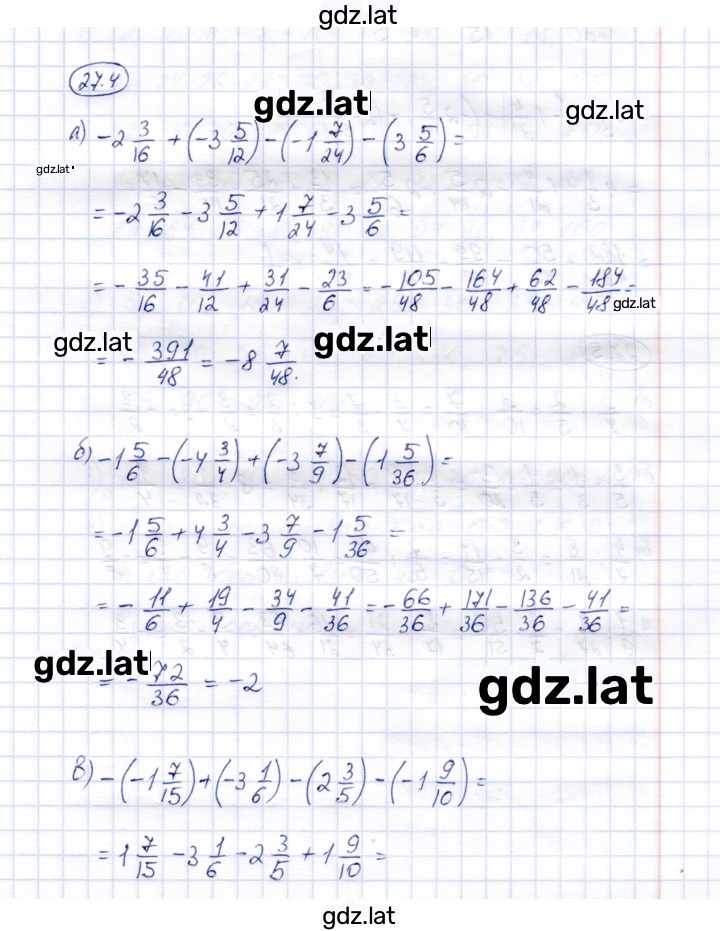 gdz.lat
27.4
gdz.lat
gdz.lat
а) -2 3/16 + (-3 5/12) - (-1 7/24) - (3 5/6) =
gdz.lat
= -2 3/16 - 3 5/12 + 1 7/24 - 3 5/6 =
= - 35/16 - 41/12 + 31/24 - 23/6 = - 105/48 - 164/48 + 62/48 - 184/48 =
gdz.lat
gdz.lat
gdz.lat
= - 391/48 = -8 7/48.
б) -1 5/6 - (-4 3/4) + (-3 7/9) - (1 5/36) =
= -1 5/6 + 4 3/4 - 3 7/9 - 1 5/36 =
= - 11/6 + 19/4 - 34/9 - 41/36 = - 66/36 + 171/36 - 136/36 - 41/36 =
gdz.lat
= - 72/36 = -2
gdz.lat
в) -(-1 7/15) + (-3 1/6) - (2 3/5) - (-1 9/10) =
= 1 7/15 - 3 1/6 - 2 3/5 + 1 9/10 =
gdz.lat